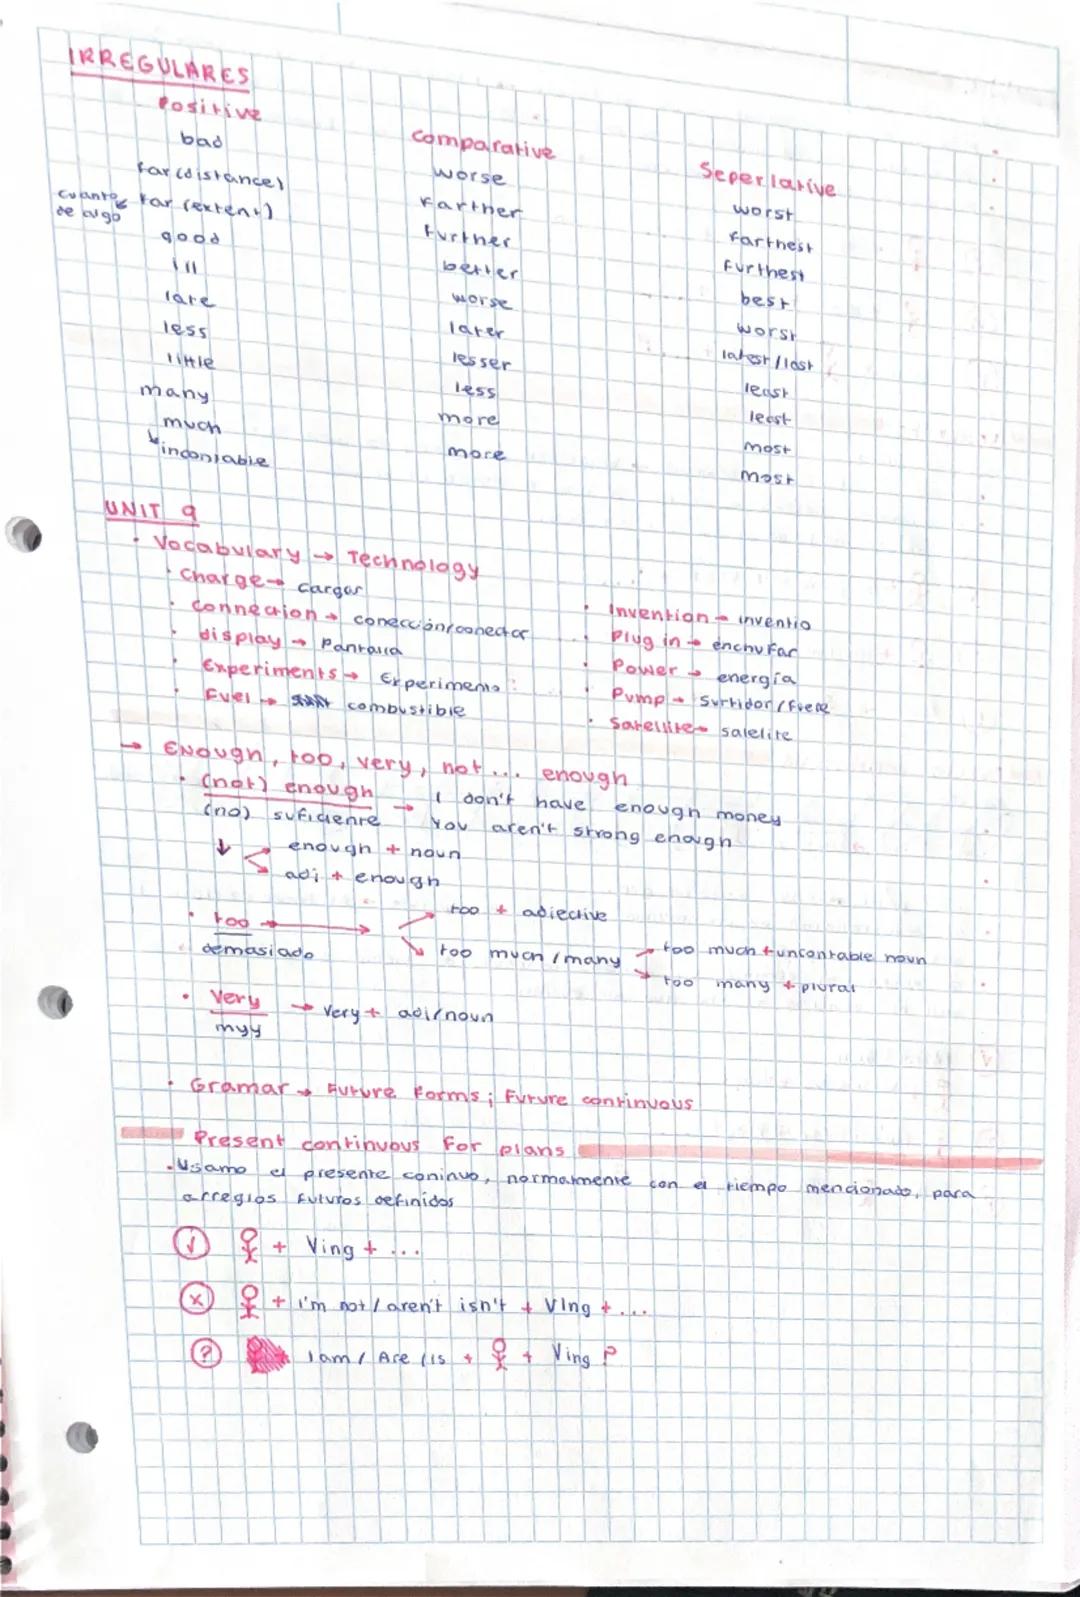 IRREGULARES
Positive comparative Seperlative
bad worse worst
far (distance) farther farthest
cuanto de algo far (extent) further furthest
good better best
ill worse worst
late later latest / last
less lesser least
little less least
many more most
much more most
incontable
UNIT 9
· Vocabulary → Technology
· Charge → cargar
· Connection → conección/conector
· display → Pantalla
· Experiments → Experimento
· Fuel → combustible
· Invention → inventio
· Plug in → enchufar
· Power → energía
· Pump → Surtidor /
· Satellite → satelite
→ Enough, too, very, not ... enough
· (not) enough → I don't have enough money
(no) suficiente You aren't strong enough
enough + noun
adj + enough
· too → too + adjective
demasiado too much / many → too much + uncontable noun
→ too many + plural
· Very → very + adj/noun
myy
· Gramar → Future Forms; Future continuous
Present continuous For plans
· Usamo el presente coninuo, normalmente con el tiempo mencionado, para
arreglos futuros definidos
✓ + Ving + ...
x + I'm not / aren't isn't + Ving + ...
? Iam / Are / is + + Ving ?